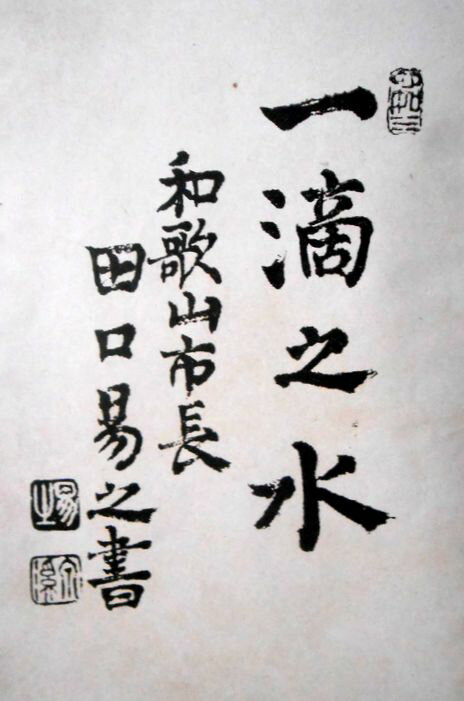 一滴之水
和歌山市長
田口易之書